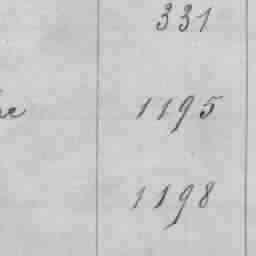 331
1195
1198